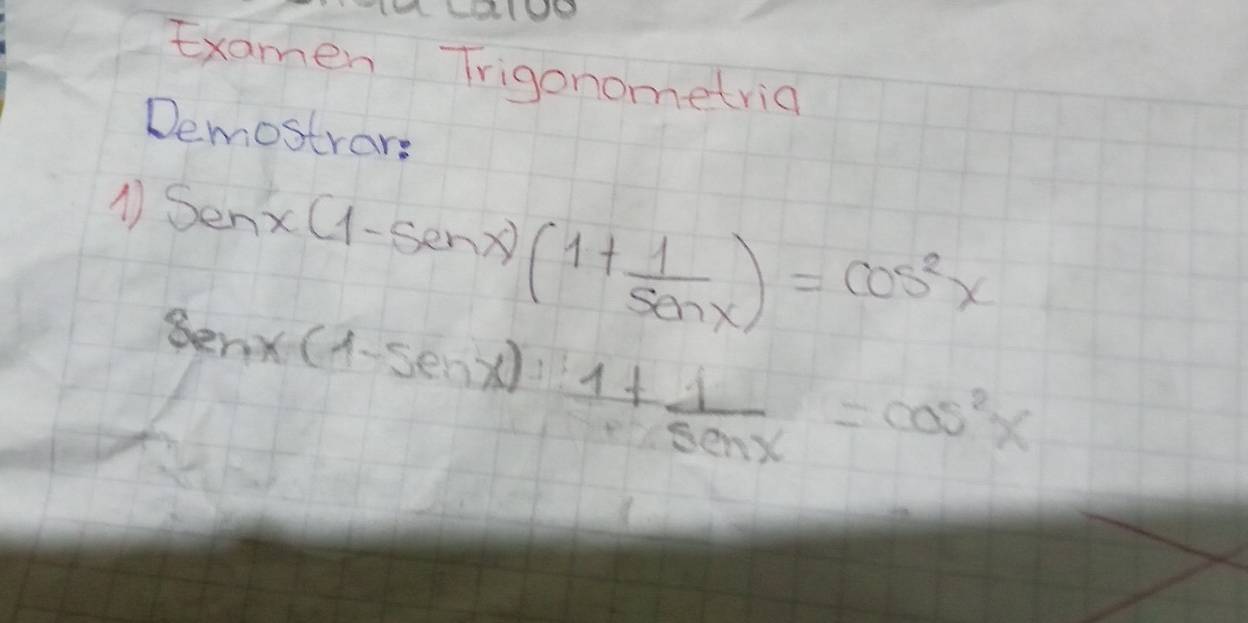 Examen Trigonometria
Demostrar:
1) Senx(1-senx)(1+1/senx) = cos²x
Senx(1-senx) 1+1/senx = cos²x